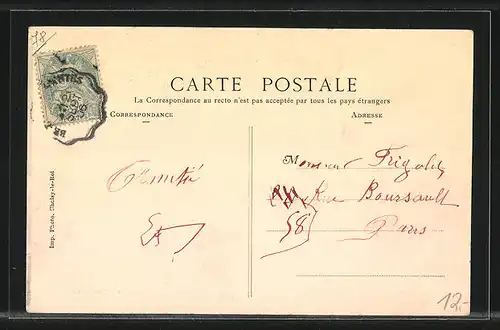 78
CARTE POSTALE
La Correspondance au recto n'est pas acceptée par tous les pays étrangers
CORRESPONDANCE
ADRESSE
Monsieur
Rue Boursault
58
Paris
Amitié
Imp. Photo. Choisy-le-Roi
12,-